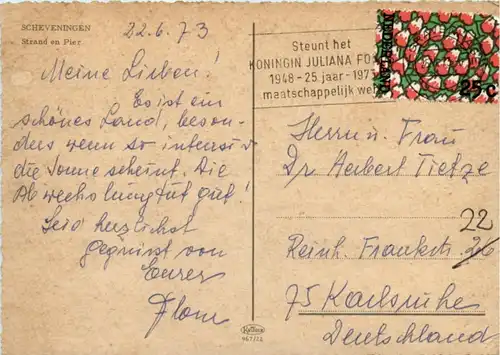 SCHEVENINGEN
Strand en Pier
22.6.73
Meine Lieben!
Es ist ein
schönes Land, beson-
ders wenn so intensiv
die Sonne scheint. Die
Abwechslung tut gut!
Seid herzlichst
gegrüsst von
Eurer
Steunt het
KONINGIN JULIANA FO
1948 - 25 jaar - 1973
maatschappelijk we
NEDERLAND
25 c
Herrn u. Frau
Dr Herbert Tietze
22
Reinh. Frankstr. 26
75 Karlsruhe
Deutschland